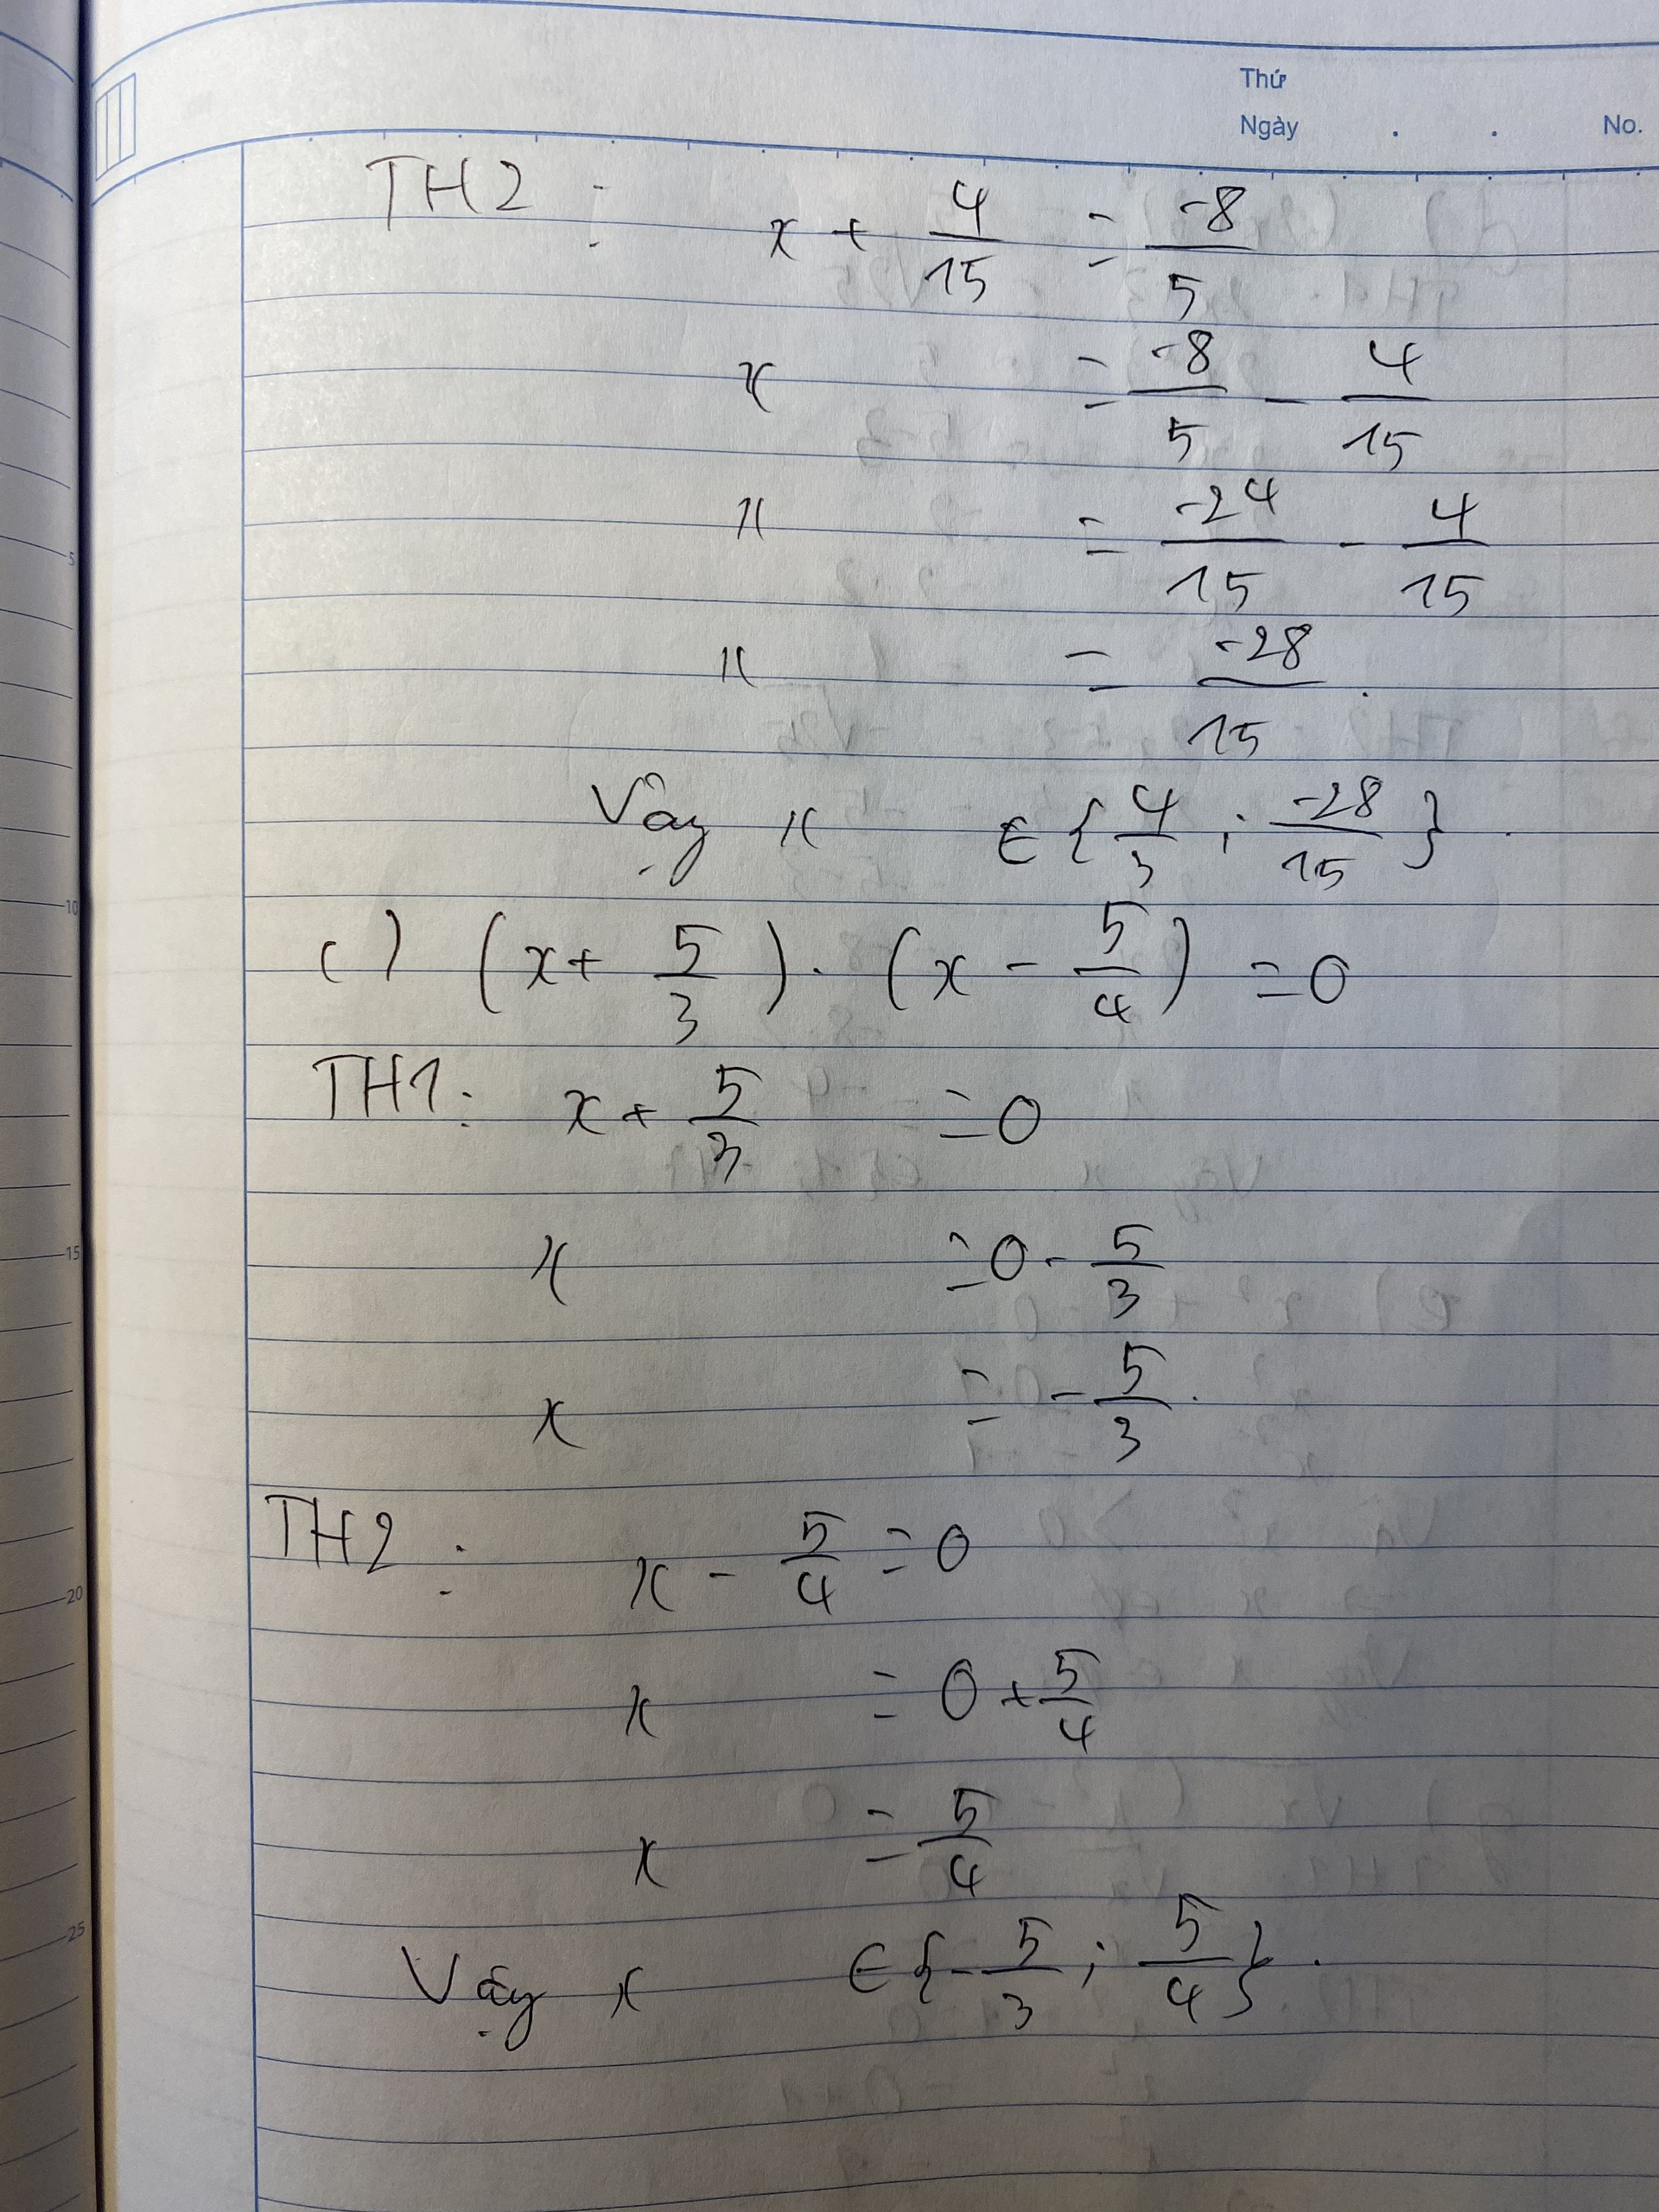 Thứ
Ngày . . No.
TH2 : x + 4/15 = -8/5
x = -8/5 - 4/15
x = -24/15 - 4/15
x = -28/15 .
Vậy x ∈ { 4/3 ; -28/15 } .
c) (x + 5/3) . (x - 5/4) = 0
TH1 : x + 5/3 = 0
x = 0 - 5/3
x = - 5/3 .
TH2 : x - 5/4 = 0
x = 0 + 5/4
x = 5/4
Vậy x ∈ { - 5/3 ; 5/4 } .
5
10
15
20
25